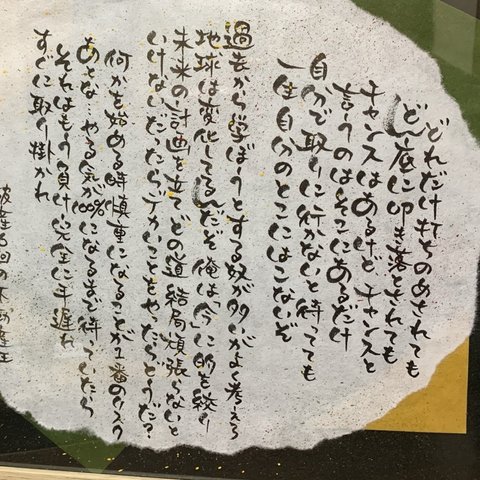 どれだけ打ちのめされても
どん底に叩き落とされても
チャンスはあるけど チャンスと
言うのはそこにあるだけ
自分で取りに行かないと待ってても
一生自分のとこにはこないぞ
過去から学ぼうとする奴が多いがよく考えろ
地球は変化してるんだぞ 俺は「今」に的を絞り
未来の計画を立て どの道結局頑張らないと
いけないんだったらデカいことをやったらどうだ?
何かを始める時慎重になることが1番のリスク
あとな…やる気が100%になるまで待っていたら
それはもう負け 一生に手遅れ
すぐに取り掛かれ
破産6回の不動産王